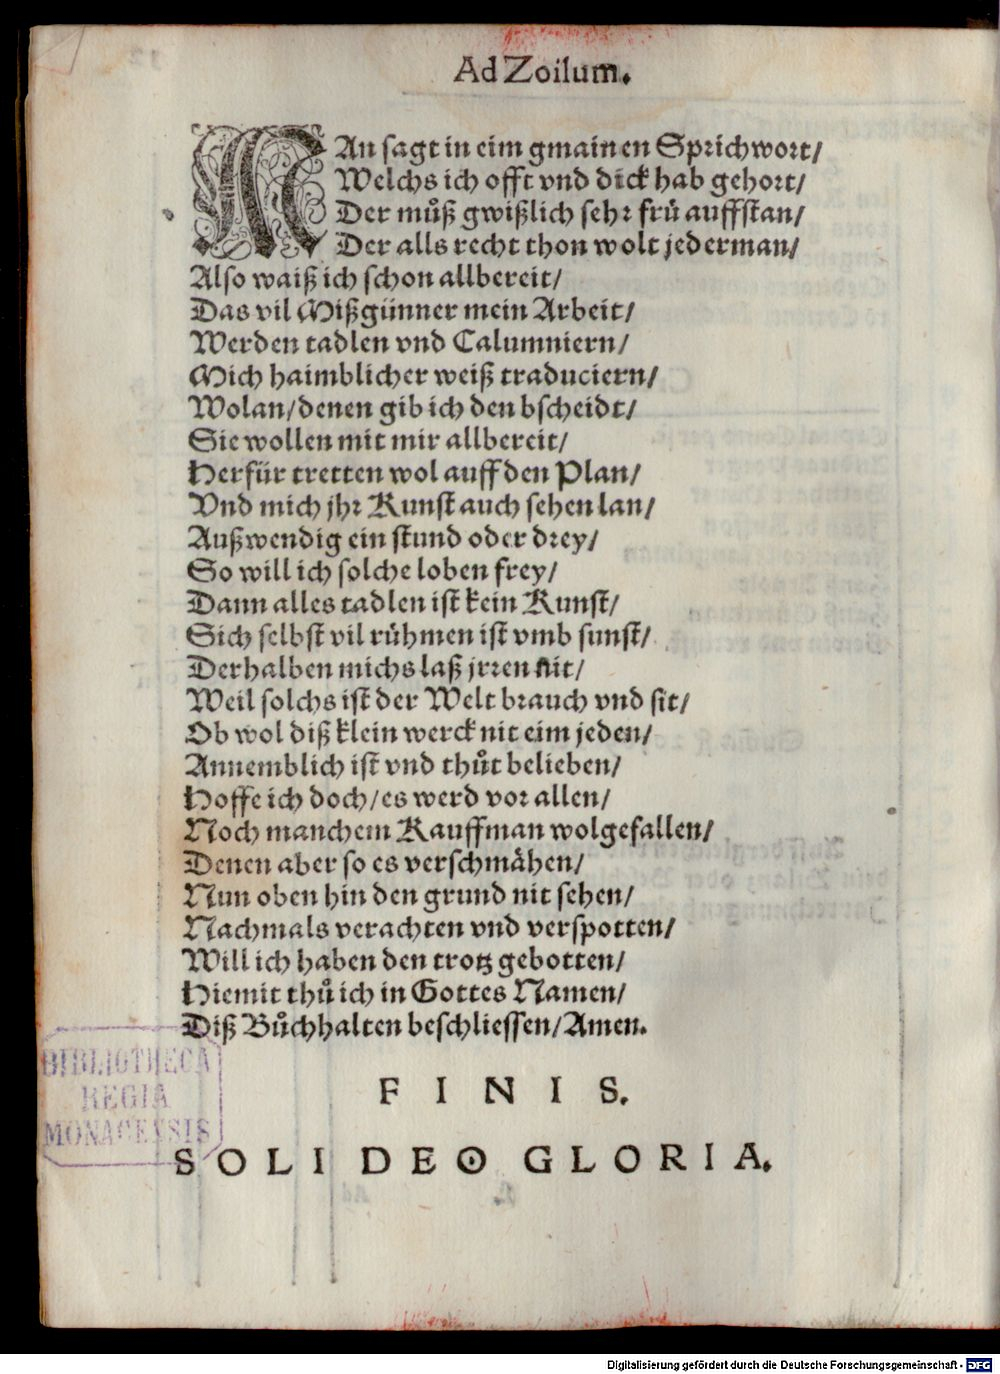 Ad Zoilum.
MAn sagt in eim gmainen Sprichwort/
Welchs ich offt vnd dick hab gehort/
Der můß gwißlich sehr frů auffstan/
Der alls recht thon wolt jederman/
Also waiß ich schon allbereit/
Das vil Mißgünner mein Arbeit/
Werden tadlen vnd Calumniern/
Mich haimblicher weiß traduciern/
Wolan/denen gib ich den bscheidt/
Sie wollen mit mir allbereit/
Herfür tretten wol auff den Plan/
Vnd mich jhr Kunst auch sehen lan/
Außwendig ein stund oder drey/
So will ich solche loben frey/
Dann alles tadlen ist kein Kunst/
Sich selbst vil růhmen ist vmb sunst/
Derhalben michs laß jrren nit/
Weil solchs ist der Welt brauch vnd sit/
Ob wol diß klein werck nit eim jeden/
Annemblich ist vnd thůt belieben/
Hoffe ich doch/es werd vor allen/
Noch manchem Kauffman wolgefallen/
Denen aber so es verschmähen/
Nun oben hin den grund nit sehen/
Nachmals verachten vnd verspotten/
Will ich haben den trotz gebotten/
Hiemit thů ich in Gottes Namen/
Diß Bůchhalten beschliessen/Amen.
BIBLIOTHECA
REGIA
MONACENSIS
FINIS.
SOLI DEO GLORIA.
Digitalisierung gefördert durch die Deutsche Forschungsgemeinschaft - DFG